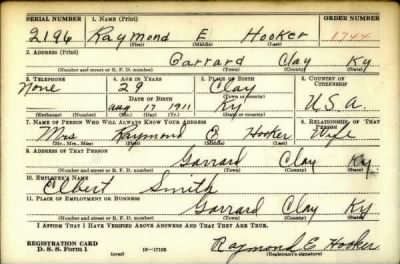 SERIAL NUMBER 1. NAME (Print) ORDER NUMBER
2196 Raymond E Hooker 1744
(First) (Middle) (Last)
2. ADDRESS (Print)
Garrard Clay Ky
(Number and street or R. F. D. number) (Town) (County) (State)
3. TELEPHONE 4. AGE IN YEARS 5. PLACE OF BIRTH 6. COUNTRY OF CITIZENSHIP
None 29 Clay
DATE OF BIRTH (Town or county)
Aug 17 1911 Ky U.S.A.
(Exchange) (Number) (Mo.) (Day) (Yr.) (State or country)
7. NAME OF PERSON WHO WILL ALWAYS KNOW YOUR ADDRESS 8. RELATIONSHIP OF THAT PERSON
Mrs Raymond E Hooker Wife
(Mr., Mrs., Miss) (First) (Middle) (Last)
9. ADDRESS OF THAT PERSON
Garrard Clay Ky.
(Number and street or R. F. D. number) (Town) (County) (State)
10. EMPLOYER'S NAME
Elbert Smith
11. PLACE OF EMPLOYMENT OR BUSINESS
Garrard Clay Ky
(Number and street or R. F. D. number) (Town) (County) (State)
I AFFIRM THAT I HAVE VERIFIED ABOVE ANSWERS AND THAT THEY ARE TRUE.
REGISTRATION CARD
D. S. S. Form 1 (over) 16—17105 Raymond E. Hooker
(Registrant's signature)